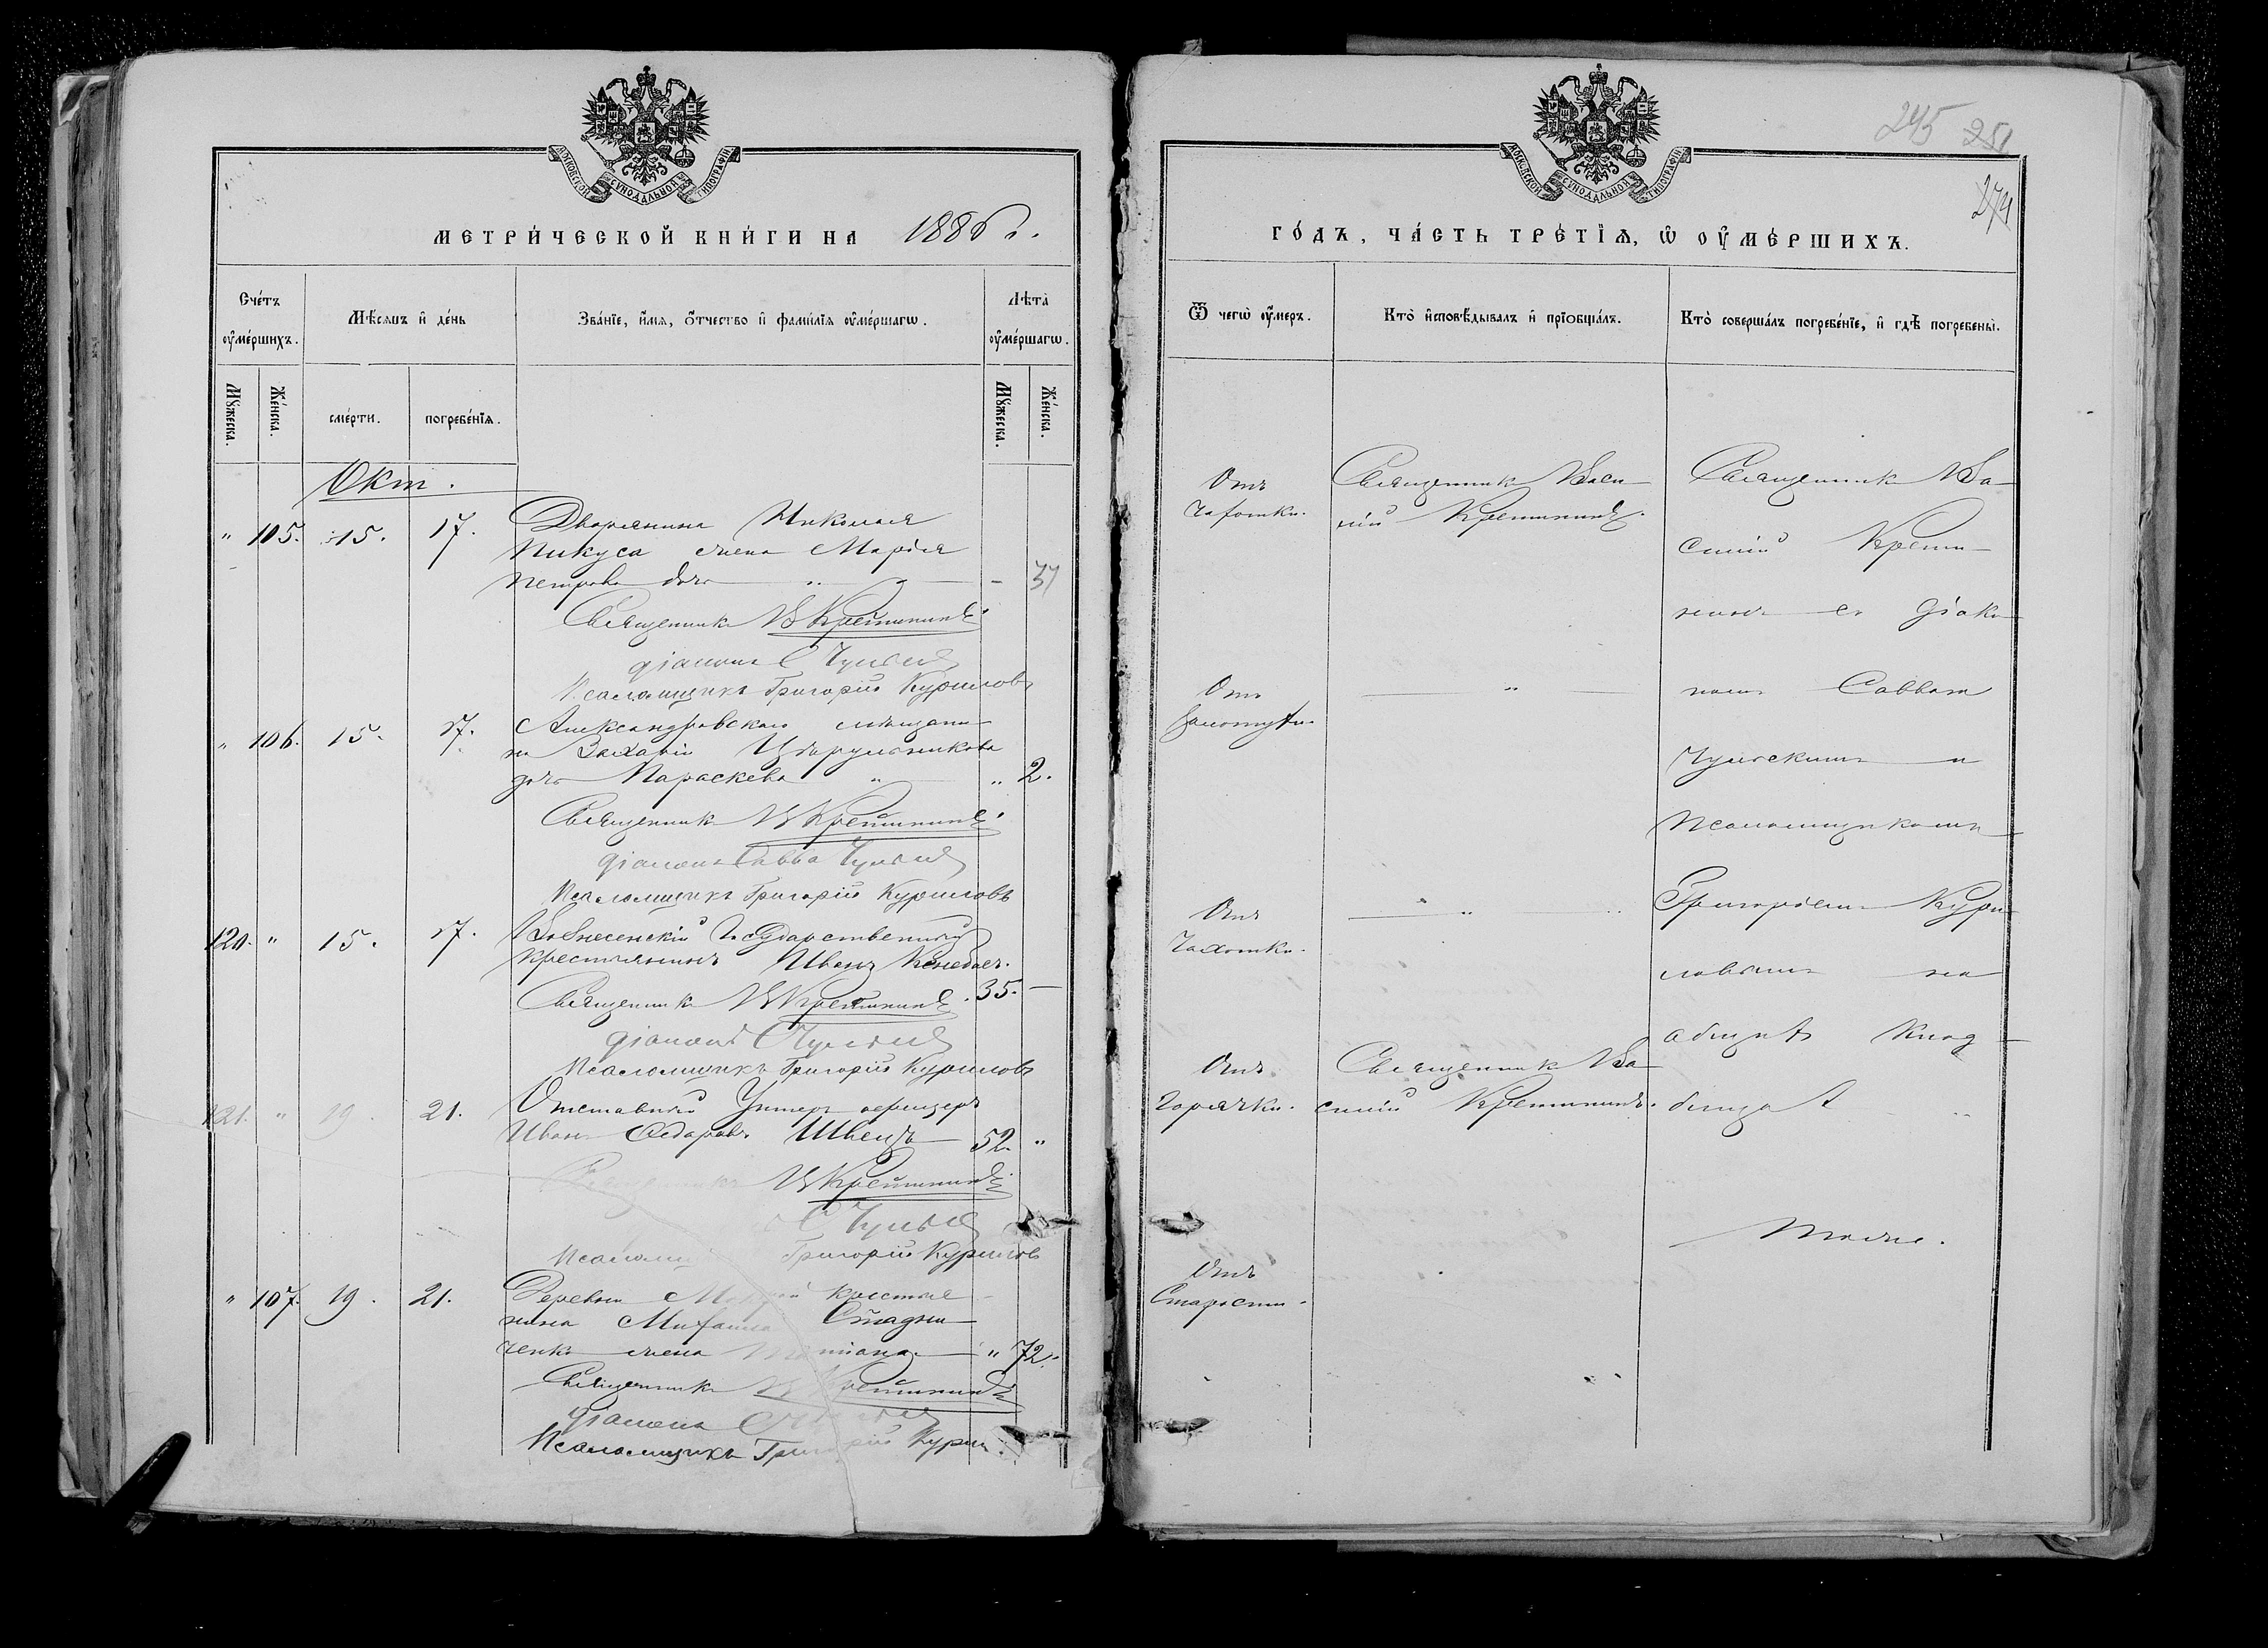 МОСКОВСКОЙ СѴНОДАЛЬНОЙ ТИПОГРАФІИ
МЕТРИ́ЧЕСКОЙ КНИ́ГИ НА 1886 г.
Сче́тъ оу҆ме́ршихъ.
Мѣ́сяцъ и҆ де́нь
Зва́нїе, и҆́мѧ, ѻ҆́тчество и҆ фами́лїѧ оу҆ме́ршагѡ.
Лѣ́та оу҆ме́ршагѡ.
Мꙋ́жеска.
Же́нска.
сме́рти.
погребе́нїѧ.
Мꙋ́жеска.
Же́нска.
Окт.
" 105. 15. 17. Дворянина Николая
Пикуса жена Марія
Петрова дочь " - 37
Священникъ В Кретининъ
діаконъ С Чульскій
Псаломщикъ Григорій Куриловъ
" 106. 15. 17. Александровскаго мѣщани-
на Захарія Цѣрульникова
дочь Параскева " " 2.
Священникъ В Кретининъ
діаконъ Савва Чульскій
Псаломщикъ Григорій Куриловъ
120. " 15. 17. Вознесенскій Государственный
крестьянинъ Иванъ
Священникъ В Кретининъ 35. —
діаконъ С Чульскій
Псаломщикъ Григорій Куриловъ
121. " 19. 21. Отставной Унтеръ офицеръ
Иванъ Федоровъ Швецъ 52. "
Священникъ В Кретининъ
С Чульскій
Псаломщ Григорій Куриловъ
" 107. 19. 21. Деревни крестья-
нина Михаила
ченко жена Татіана " 72.
Священникъ В Кретининъ
діаконъ С Чульскій
Псаломщикъ Григорій Курил
МОСКОВСКОЙ СѴНОДАЛЬНОЙ ТИПОГРАФІИ
245 251
274
ГО́ДЪ, ЧА́СТЬ ТРЕ́ТЇѦ, Ѡ҆ ОУ҆МЕ́РШИХЪ.
Ѿ чегѡ̀ оу҆́меръ.
Кто̀ и҆сповѣ́дывалъ и҆ прїобща́лъ.
Кто̀ соверша́лъ погребе́нїе, и҆ гдѣ̀ погребены̀.
Отъ
Чахотки.
Священникъ Васи-
лій Кретининъ.
Священникъ Ва-
силій Крети-
нинъ съ Діако-
номъ Саввою
Чульскимъ и
Псаломщикомъ
Григоріемъ Кури-
ловымъ на
общемъ Клад-
бищѣ
Отъ
Золотухи.
"
Отъ
Чахотки.
"
Отъ
Горячки.
Священникъ Ва-
силій Кретининъ.
Тоже.
Отъ
Старости.